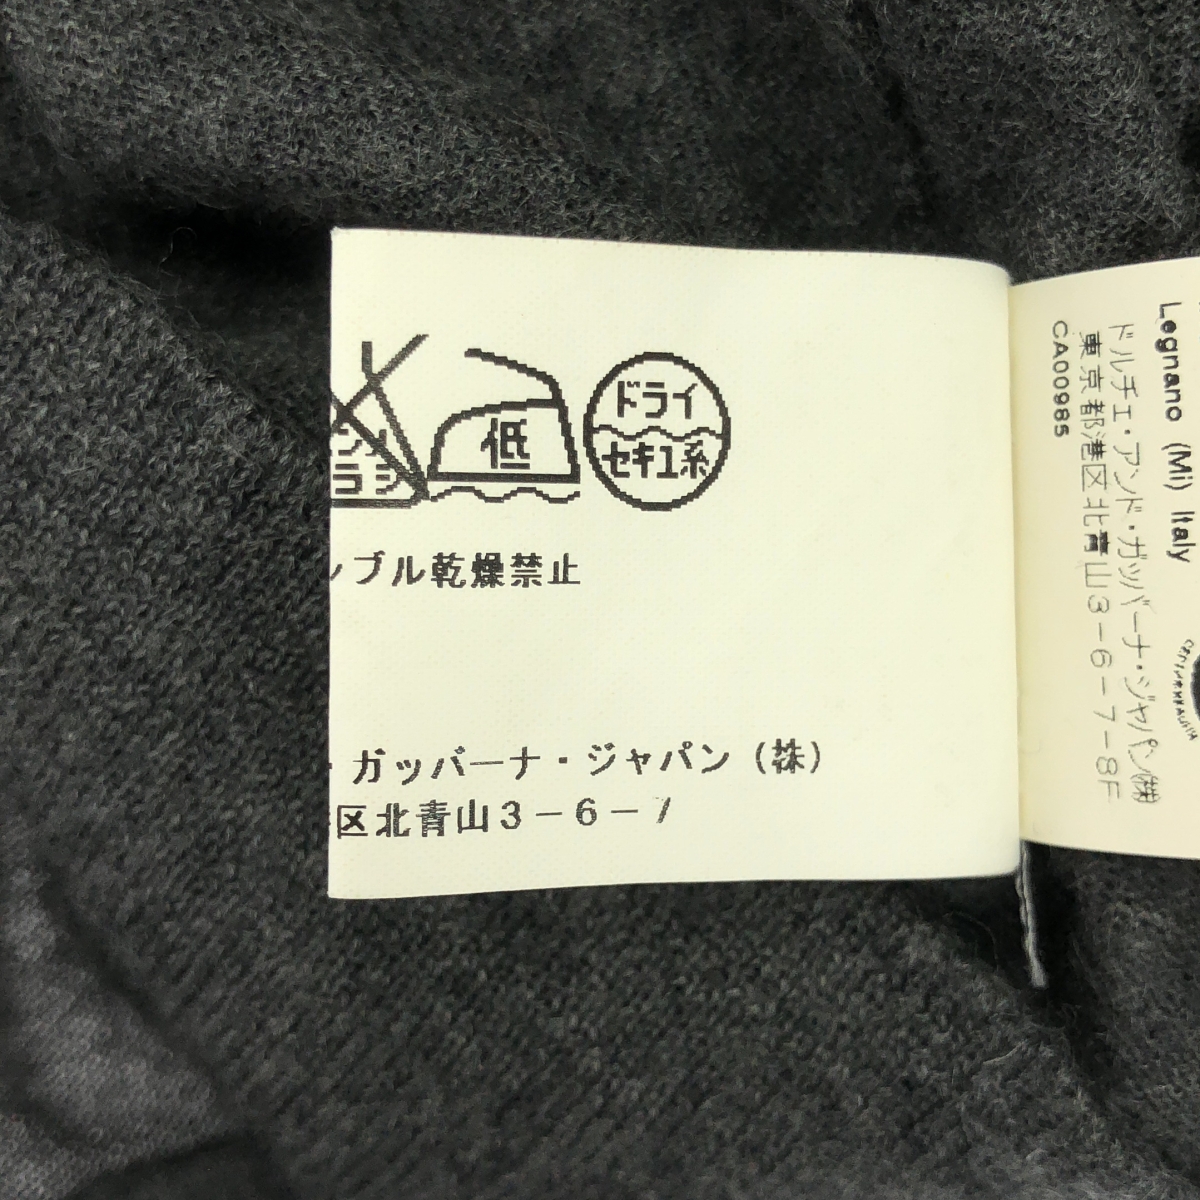 ドライ
セキユ系
低
ンソ
ラシ
ンブル乾燥禁止
・ガッバーナ・ジャパン(株)
区北青山3-6-7
Legnano (Mi) Italy
ドルチェ・アンド・ガッバーナ・ジャパン㈱
東京都港区北青山3-6-7-8F
CA00985